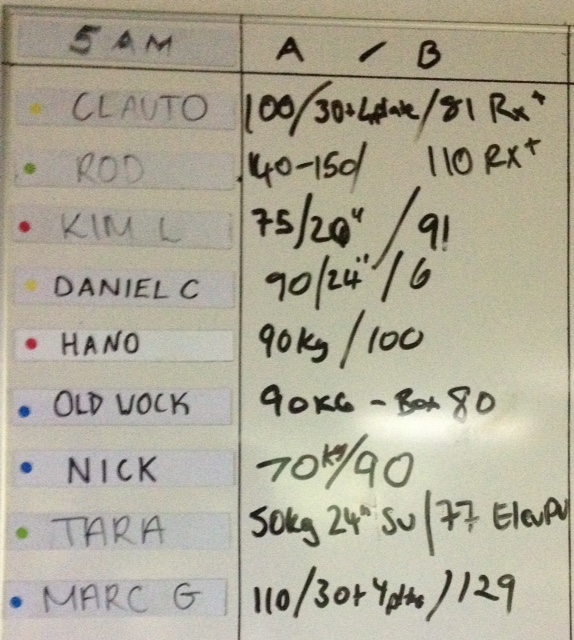 5 AM A / B
CLAUTO 100/30+4plate/81 Rx+
ROD 140-150/ 110 RX+
KIM L 75/20" / 91
DANIEL C 90/24" / 6
HANO 90kg / 100
OLD VOCK 90KG - Box 80
NICK 70kg/90
TARA 50kg 24" SU/77 ElevPU
MARC G 110/30+4plts/129